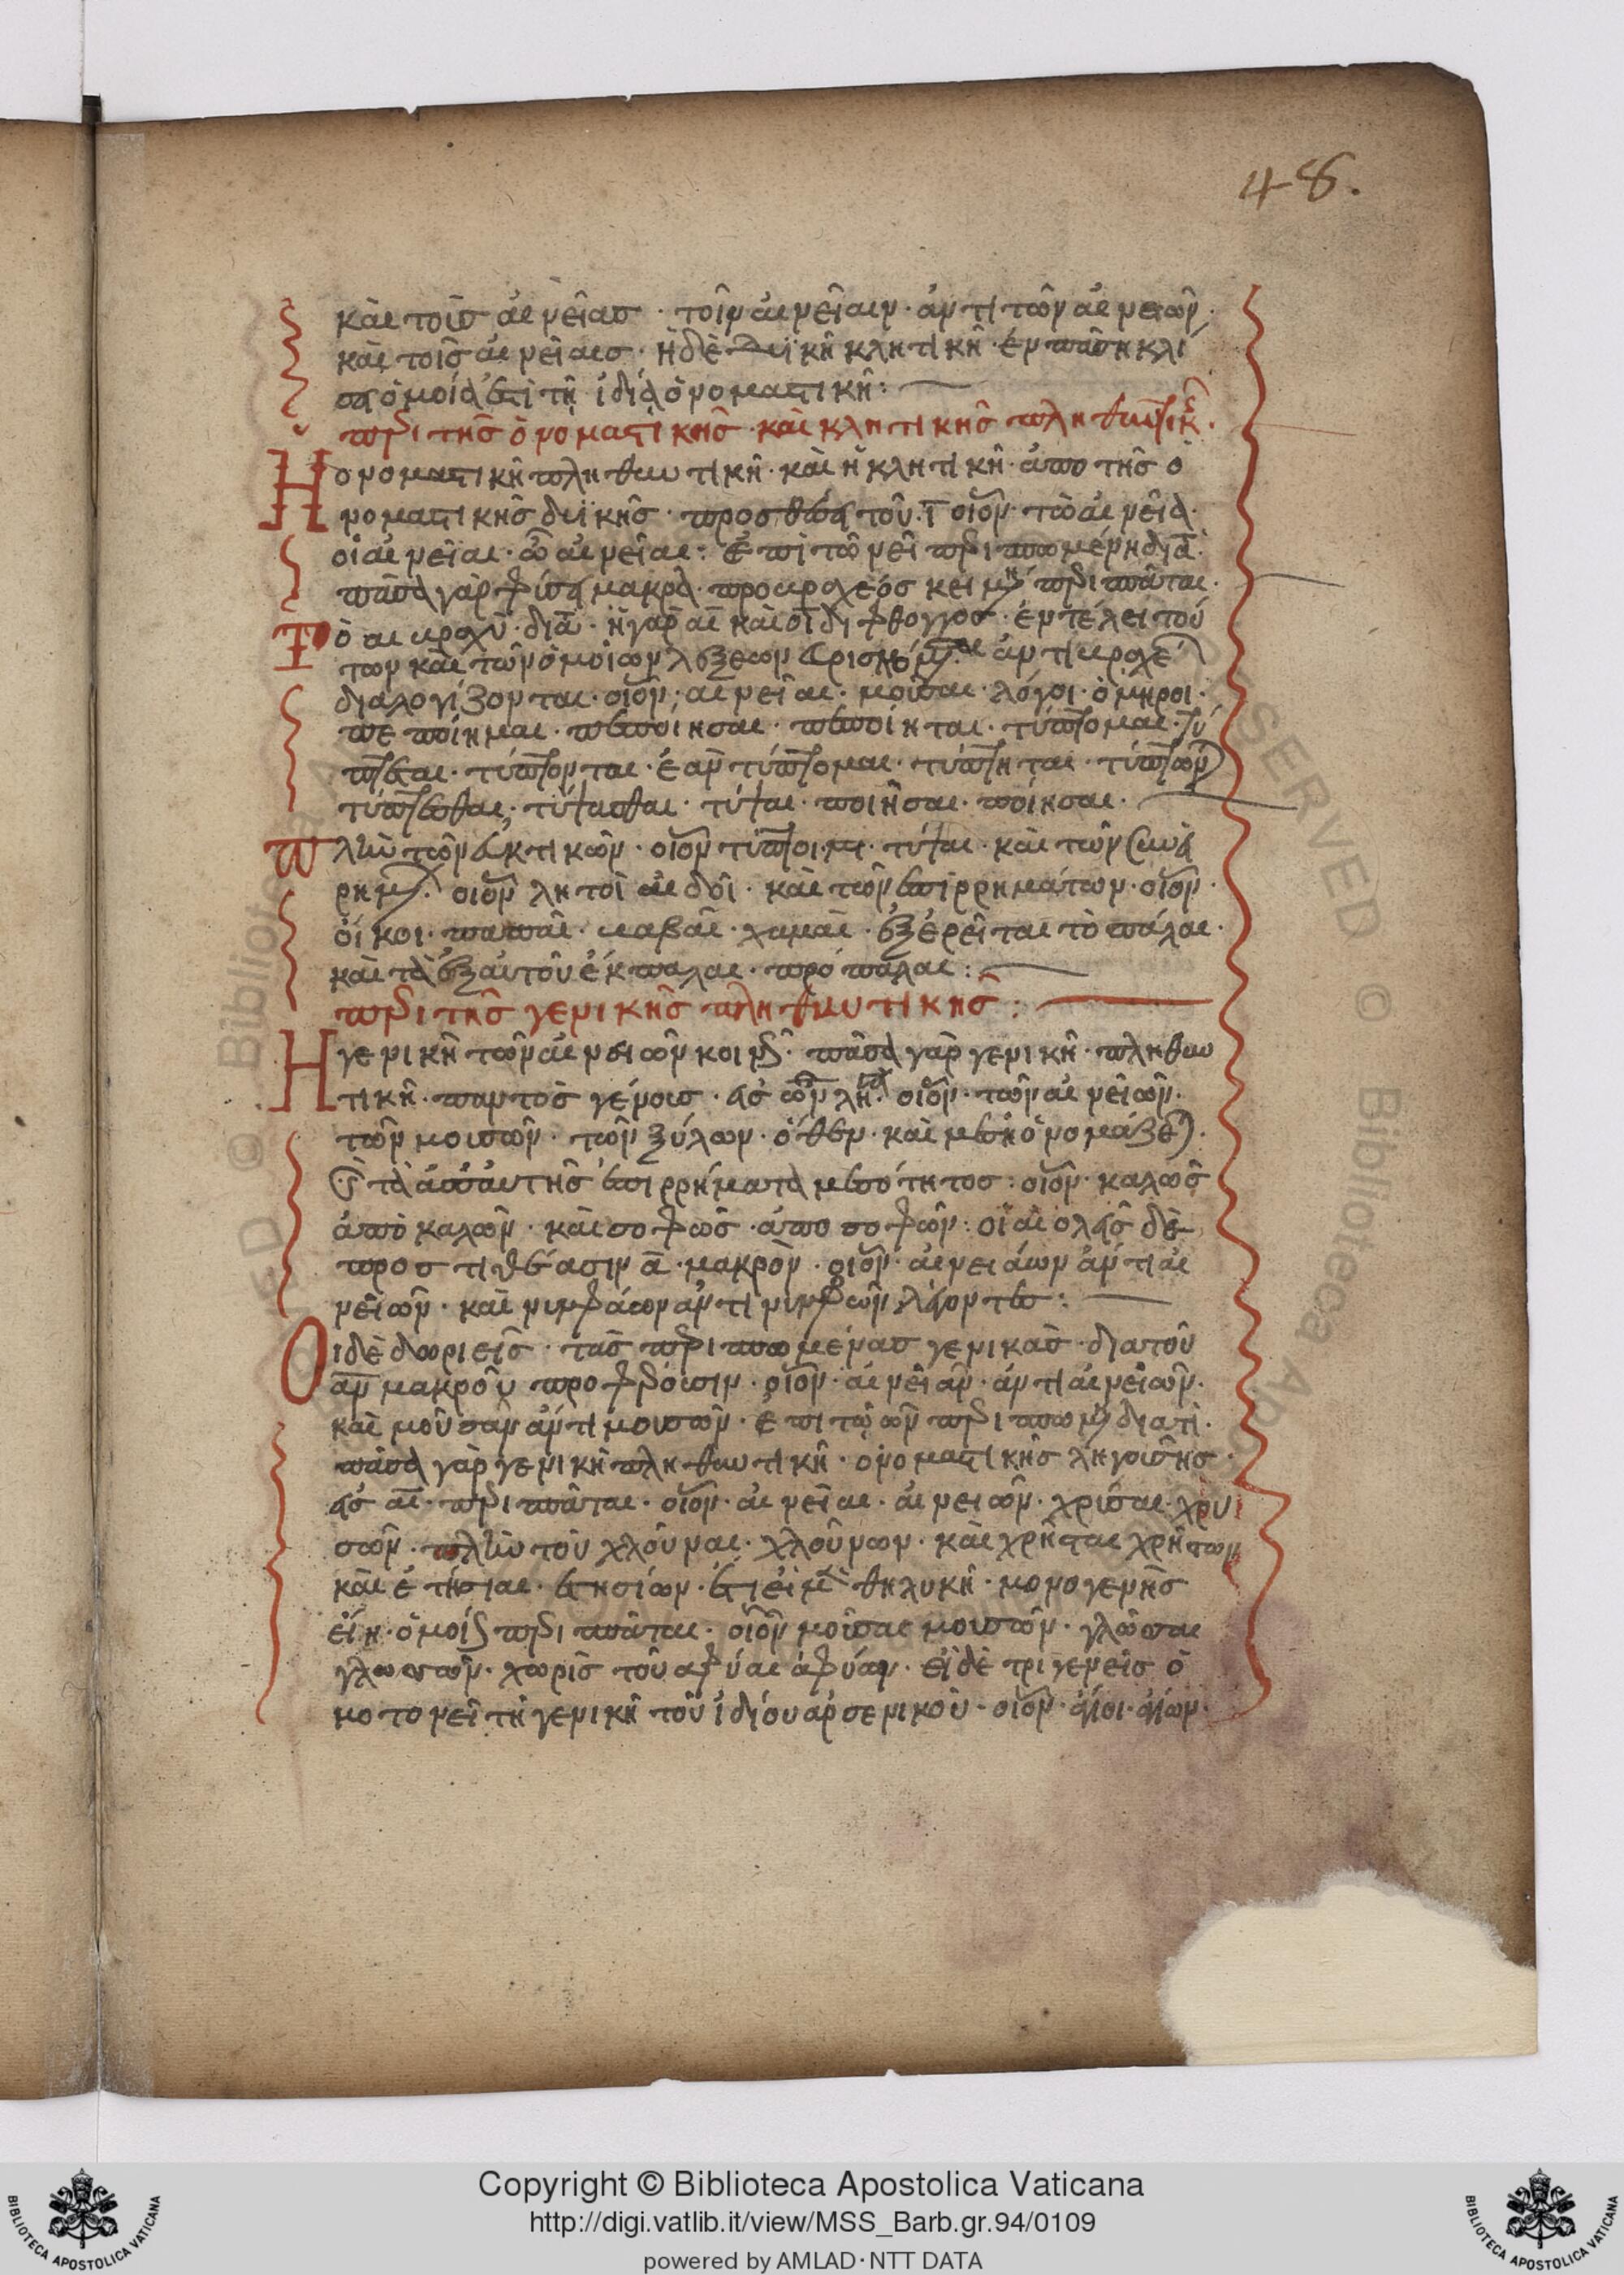 48.
καὶ τοῖς αἰνείας · τοῖν αἰνείαιν · ἀντὶ τῶν αἰνειῶν ·
καὶ τοῖς αἰνείαις · ἡ δὲ δυϊκὴ κλητικὴ · ἐν πάσῃ κλί
ὁμοία ἐστὶ τῇ ἰδίᾳ ὀνομαστικῇ :
περὶ τῆς ὀνομαστικῆς καὶ κλητικῆς πληθυντικ.
Η ὀνομαστικὴ πληθυντικὴ · καὶ ἡ κλητικὴ · ἀπὸ τῆς ὀ
νομαστικῆς δυϊκῆς · τοῦ · ι οἷον · τὼ αἰνεία ·
οἱ αἰνεῖαι · ὦ αἰνεῖαι : ἐπὶ τῷ νει διὰ
πᾶσα γὰρ φύσει μακρὰ · προ περισπᾶται ·
Τὸ διὰ · ἡ γὰρ αι καὶ οι δίφθογγος · ἐν τέλει τού
των καὶ τῶν ὁμοίων λέξεων ἀντὶ
διαλογίζονται · οἷον · αἰνεῖαι · μοῦσαι · λόγοι · ὅμηροι ·
πεποίημαι · πεποίησαι · πεποίηται · τύπτομαι · τύ
πτεται · τύπτονται · ἐὰν τύπτομαι · τύπτηται · τύπτων
τύπτεσθαι · τύψασθαι · τύψαι · ποιῆσαι · ποίησαι ·
πλὴν τῶν εὐκτικῶν · οἷον τύπτοιμι · τύψαι · καὶ τῶν συναι
ρημ οἷον λητοῖ αἰδοῖ · καὶ τῶν ἐπιρρημάτων · οἷον ·
οἴκοι · παπαῖ · βαβαὶ · χαμαὶ · ἐξαιρεῖται τὸ πάλαι ·
καὶ τὰ ἐξ αὐτοῦ ἔκπαλαι · πρόπαλαι :
περὶ τῆς γενικῆς πληθυντικῆς :
Η γενικὴ τῶν αἰνειῶν κοινῶς · πᾶσα γὰρ γενικὴ · πληθυν
τικὴ · παντὸς γένους · εἰς ων λήγει οἷον · τῶν αἰνειῶν ·
τῶν μουσῶν · τῶν ξύλων · ὅθεν · καὶ μέση ὀνομάζεται ·
καὶ τὰ ἀπ' αὐτῆς ἐπιρρήματα μεσότητος : οἷον · καλῶς
ἀπὸ καλῶν · καὶ σοφῶς · ἀπὸ σοφῶν : οἱ αἰολεῖς δὲ
προστιθέασιν α · μακρὸν · οἷον · αἰνειάων ἀντὶ αἰ
νειῶν · καὶ νυμφάων ἀντὶ νυμφῶν λέγοντες :
Οἱ δὲ δωριεῖς · τὰς περισπωμένας γενικὰς · διὰ τοῦ
αν μακροῦ προφέρουσιν · οἷον · αἰνειᾶν · ἀντὶ αἰνειῶν ·
καὶ μουσᾶν ἀντὶ μουσῶν · ἐπὶ τῷ ων περισπωμ διατί ·
πᾶσα γὰρ γενικὴ πληθυντικὴ · ὀνομαστικῆς ληγούσης ·
εἰς αι · περισπᾶται · οἷον · αἰνεῖαι · αἰνειῶν · χρύσαι · χρυ
σῶν · πλὴν τοῦ χλοῦναι · χλούνων · καὶ χρῆσται χρήστων
καὶ ἐτήσιαι · ἐτησίων · ἔτι εἰ μὲν θηλυκὴ · μονογενὴς
εἴη · ὁμοίως περισπᾶται · οἷον μοῦσαι μουσῶν · γλῶσσαι
γλωσσῶν · χωρὶς τοῦ ἀφύαι ἀφύων · εἰ δὲ τριγενεῖς ὁ
μοτονεῖ τῇ γενικῇ τοῦ ἰδίου ἀρσενικοῦ · οἷον · ἅγιοι · ἁγίων ·
Copyright © Biblioteca Apostolica Vaticana
http://digi.vatlib.it/view/MSS_Barb.gr.94/0109
powered by AMLAD · NTT DATA